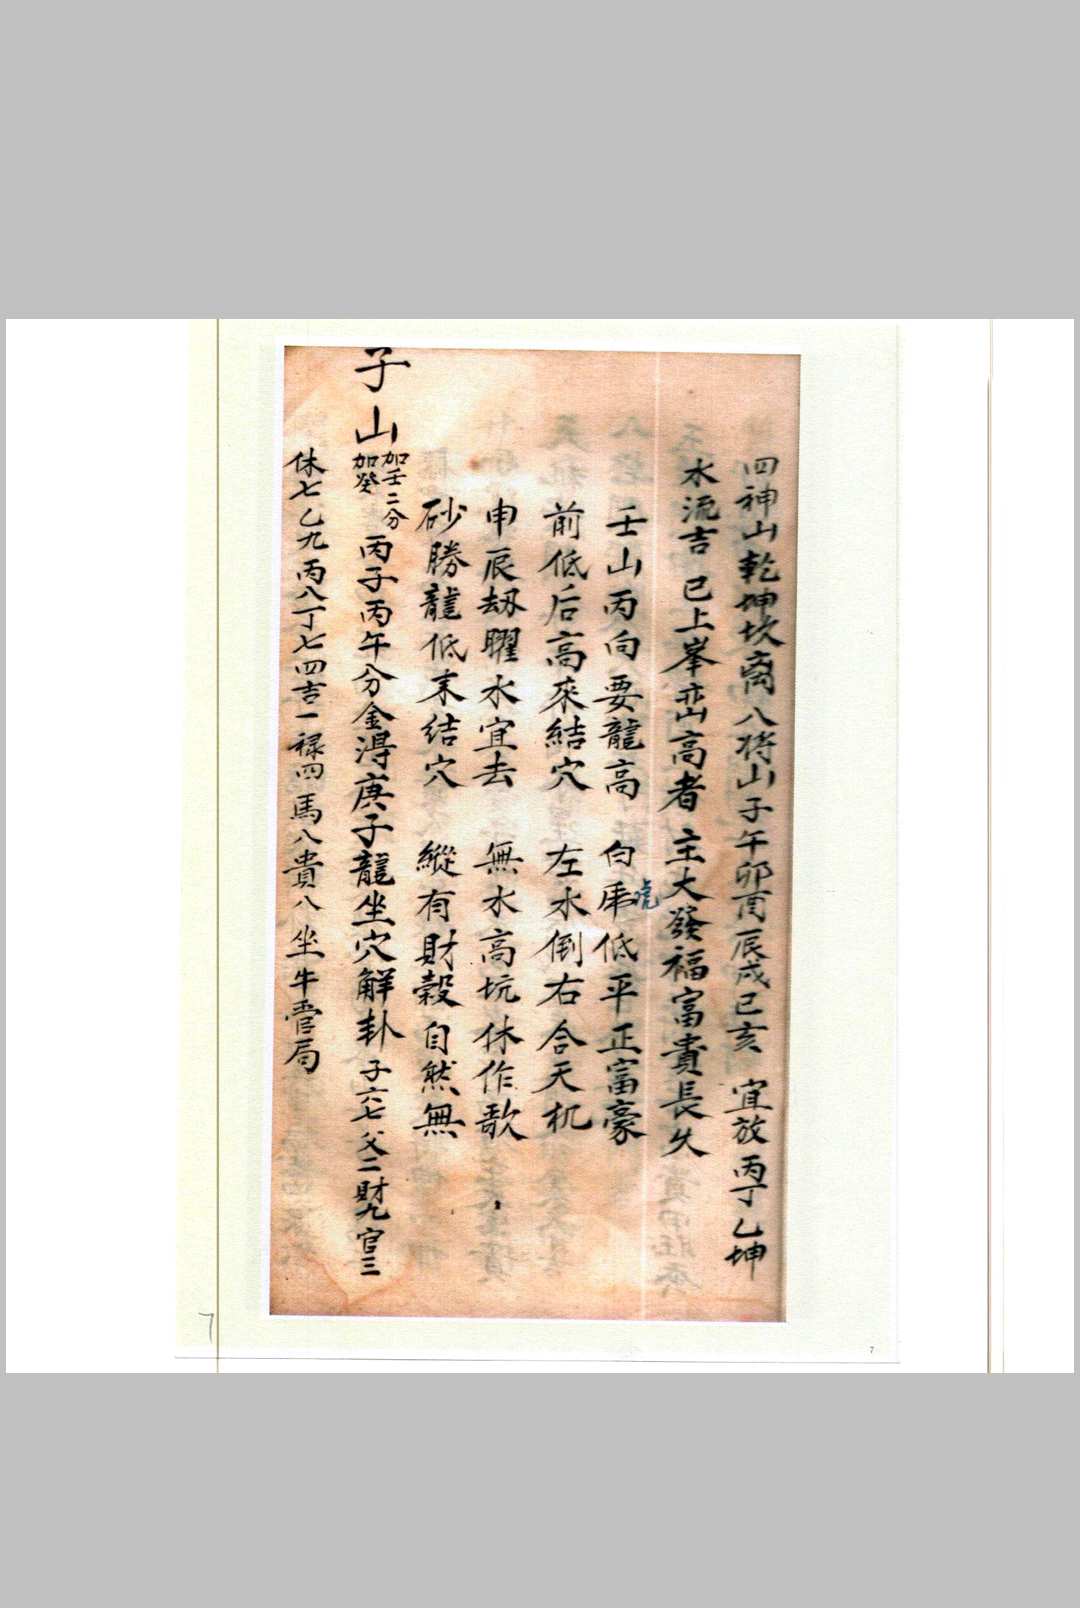 四神山乾坤坎离八将山子午卯酉辰戌巳亥 宜放丙丁乙坤
水流吉 已上峯峦高者 主大發福富貴長久
壬山丙向要龍高 白虎低平正富豪
虎
前低后高來結穴 左水倒右合天机
申辰劫曜水宜去 無水高坑休作歌
砂勝龍低末结穴 縱有財穀自然無
子山 加壬加癸二分 丙子丙午分金淂庚子龍坐穴解卦 子六七父二財九官三
休七乙九丙八丁七四吉一禄四馬八貴八坐牛局
7
7